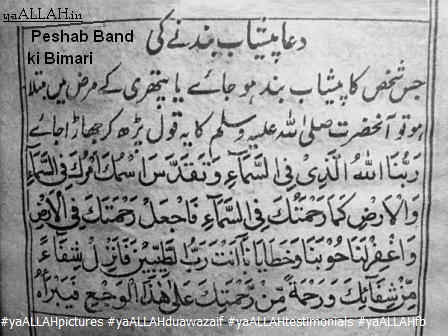 yaALLAH.in
Peshab Band
ki Bimari
دعا پیشاب بند نے کی
جس شخص کا پیشاب بند ہو جائے یا پتھری کے مرض میں مبتلا
ہو تو آنحضرت صلی اللہ علیہ وسلم کا یہ قول پڑھ کر جھاڑا جائے
رَبُّنَا اللهُ الَّذِیْ فِی السَّمَآءِ وَتَقَدَّسَ اسْمُكَ اَمْرُكَ فِی السَّمَآءِ
وَالْاَرْضِ كَمَا رَحْمَتُكَ فِی السَّمَآءِ فَاجْعَلْ رَحْمَتَكَ فِی الْاَرْضِ
وَاغْفِرْ لَنَا حُوْبَنَا وَخَطَایَانَا اَنْتَ رَبُّ الطَّیِّبِیْنَ فَاَنْزِلْ شِفَآءً
مِّنْ شِفَآئِكَ وَرَحْمَةً مِّنْ رَّحْمَتِكَ عَلٰی هٰذَا الْوَجِیْعِ فَیَبْرَاُ
#yaALLAHpictures #yaALLAHduawazaif #yaALLAHtestimonials #yaALLAHfb